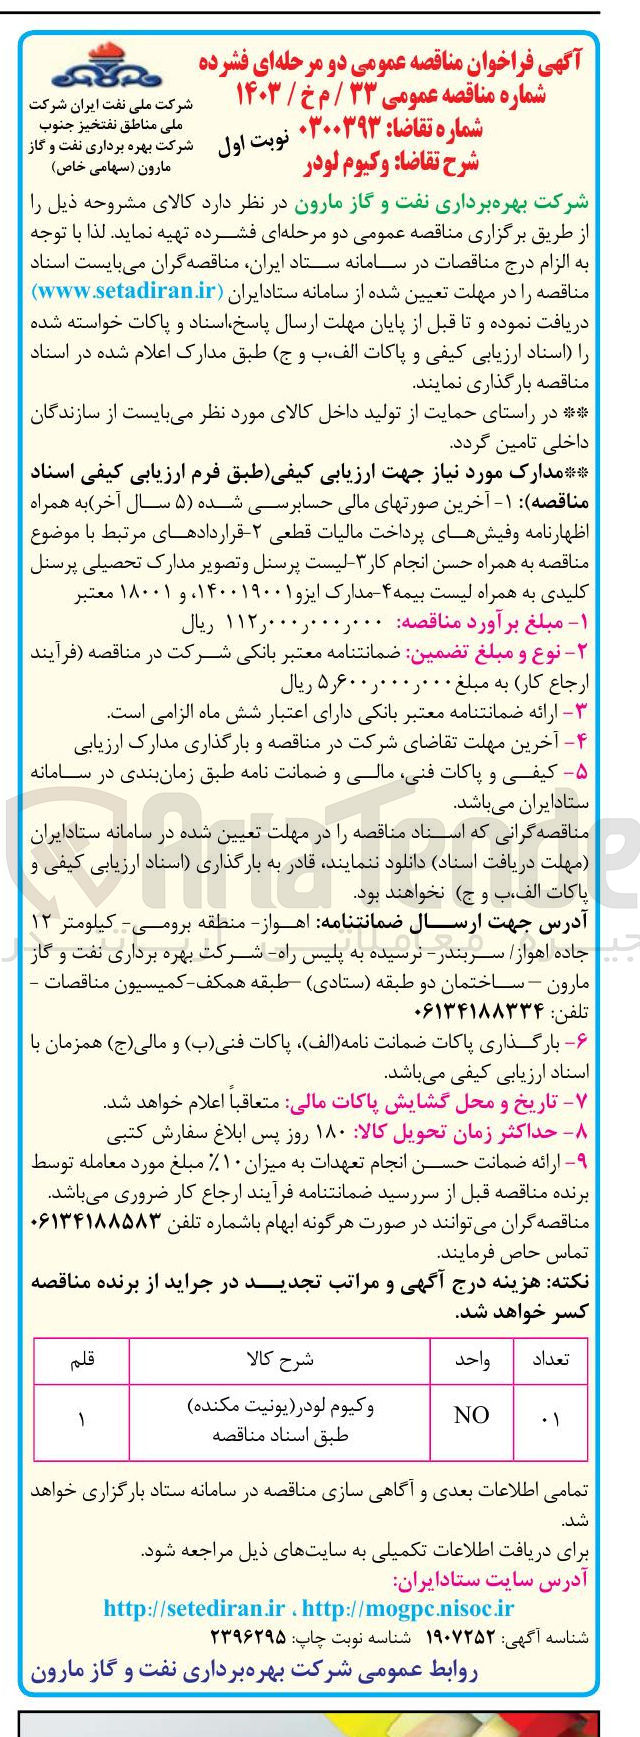 آگهی فراخوان مناقصه عمومی دو مرحله‌ای فشرده
شماره مناقصه عمومی ۳۳ / م خ / ۱۴۰۳
شماره تقاضا: ۰۳۰۰۳۹۳
نوبت اول
شرح تقاضا: وکیوم لودر
شرکت ملی نفت ایران شرکت
ملی مناطق نفتخیز جنوب
شرکت بهره برداری نفت و گاز
مارون (سهامی خاص)
شرکت بهره‌برداری نفت و گاز مارون در نظر دارد کالای مشروحه ذیل را
از طریق برگزاری مناقصه عمومی دو مرحله‌ای فشـرده تهیه نماید. لذا با توجه
به الزام درج مناقصات در سـامانه سـتاد ایران، مناقصه‌گران می‌بایست اسناد
مناقصه را در مهلت تعیین شده از سامانه ستادایران (www.setadiran.ir)
دریافت نموده و تا قبل از پایان مهلت ارسال پاسخ،اسناد و پاکات خواسته شده
را (اسناد ارزیابی کیفی و پاکات الف،ب و ج) طبق مدارک اعلام شده در اسناد
مناقصه بارگذاری نمایند.
** در راستای حمایت از تولید داخل کالای مورد نظر می‌بایست از سازندگان
داخلی تامین گردد.
**مدارک مورد نیاز جهت ارزیابی کیفی(طبق فرم ارزیابی کیفی اسناد
مناقصه): ۱- آخرین صورتهای مالی حسابرسـی شـده (۵ سـال آخر)به همراه
اظهارنامه وفیش‌هـای پرداخت مالیات قطعی ۲-قراردادهـای مرتبط با موضوع
مناقصه به همراه حسن انجام کار۳-لیست پرسنل وتصویر مدارک تحصیلی پرسنل
کلیدی به همراه لیست بیمه۴-مدارک ایزو۱۴۰۰۱۹۰۰۱، و ۱۸۰۰۱ معتبر
۱- مبلغ برآورد مناقصه: ۱۱۲٫۰۰۰٫۰۰۰٫۰۰۰ ریال
۲- نوع و مبلغ تضمین: ضمانتنامه معتبر بانکی شـرکت در مناقصه (فرآیند
ارجاع کار) به مبلغ۵٫۶۰۰٫۰۰۰٫۰۰۰ ریال
۳- ارائه ضمانتنامه معتبر بانکی دارای اعتبار شش ماه الزامی است.
۴- آخرین مهلت تقاضای شرکت در مناقصه و بارگذاری مدارک ارزیابی
۵- کیفـی و پاکات فنی، مالـی و ضمانت نامه طبق زمان‌بندی در سـامانه
ستادایران می‌باشد.
مناقصه‌گرانی که اسـناد مناقصه را در مهلت تعیین شده در سامانه ستادایران
(مهلت دریافت اسناد) دانلود ننمایند، قادر به بارگذاری (اسناد ارزیابی کیفی و
پاکات الف،ب و ج) نخواهند بود.
آدرس جهت ارسـال ضمانتنامه: اهـواز- منطقه برومـی- کیلومتر ۱۲
جاده اهواز/ سـربندر- نرسیده به پلیس راه- شـرکت بهره برداری نفت و گاز
مارون – سـاختمان دو طبقه (ستادی) –طبقه همکف-کمیسیون مناقصات -
تلفن: ۰۶۱۳۴۱۸۸۳۳۴
۶- بارگـذاری پاکات ضمانت نامه(الف)، پاکات فنی(ب) و مالی(ج) همزمان با
اسناد ارزیابی کیفی می‌باشد.
۷- تاریخ و محل گشایش پاکات مالی: متعاقباً اعلام خواهد شد.
۸- حداکثر زمان تحویل کالا: ۱۸۰ روز پس ابلاغ سفارش کتبی
۹- ارائه ضمانت حسـن انجام تعهدات به میزان۱۰٪ مبلغ مورد معامله توسط
برنده مناقصه قبل از سررسید ضمانتنامه فرآیند ارجاع کار ضروری می‌باشد.
مناقصه‌گران می‌توانند در صورت هرگونه ابهام باشماره تلفن ۰۶۱۳۴۱۸۸۵۸۳
تماس حاصل فرمایند.
نکته: هزینه درج آگهی و مراتب تجدیـد در جراید از برنده مناقصه
کسر خواهد شد.
تعداد واحد شرح کالا قلم
۰۱ NO وکیوم لودر(یونیت مکنده) ۱
طبق اسناد مناقصه
تمامی اطلاعات بعدی و آگاهی سازی مناقصه در سامانه ستاد بارگزاری خواهد
شد.
برای دریافت اطلاعات تکمیلی به سایت‌های ذیل مراجعه شود.
آدرس سایت ستادایران:
http://setediran.ir ، http://mogpc.nisoc.ir
شناسه آگهی: ۱۹۰۷۲۵۲ شناسه نوبت چاپ: ۲۳۹۶۲۹۵
روابط عمومی شرکت بهره‌برداری نفت و گاز مارون